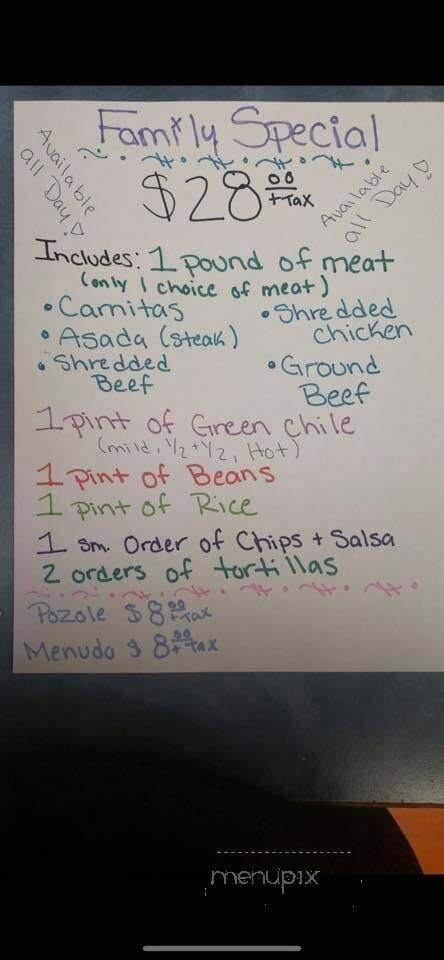 Family Special
Available all Day!
$28.00 + Tax
Available all Day!
Includes: 1 pound of meat
(only 1 choice of meat)
• Carnitas
• Shredded Chicken
• Asada (steak)
• Shredded Beef
• Ground Beef
1 pint of Green chile
(mild, 1/2 + 1/2, Hot)
1 pint of Beans
1 pint of Rice
1 sm. Order of Chips + Salsa
2 orders of tortillas
Pozole $8.00 + Tax
Menudo $8.00 + Tax
menupix